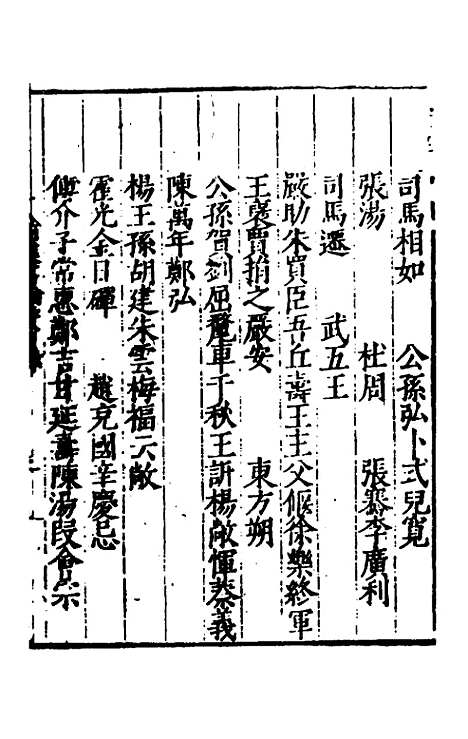 司馬相如　公孫弘卜式兒寬
張湯　杜周　張騫李廣利
司馬遷　武五王
嚴助朱買臣吾丘壽王主父偃徐樂終軍
王襃賈捐之嚴安　東方朔
公孫賀劉屈氂車千秋王訢楊敞惲蔡義
陳萬年鄭弘
楊王孫胡建朱雲梅福云敞
霍光金日磾　趙充國辛慶忌
傅介子常惠鄭吉甘延壽陳湯段會宗